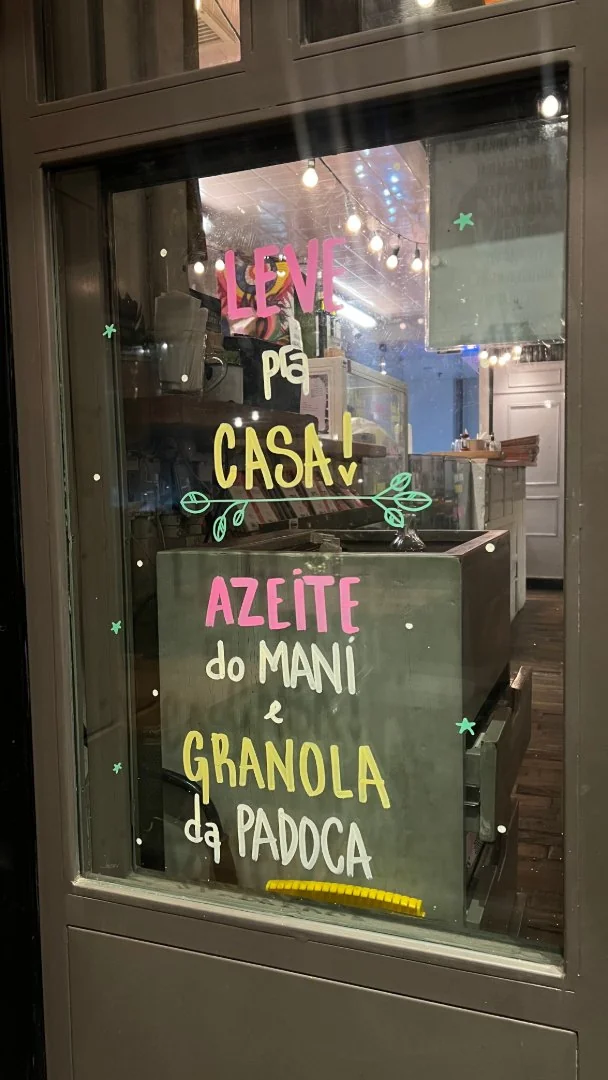 LEVE
pra
CASA!
AZEITE
do MANÍ
e
GRANOLA
da PADOCA